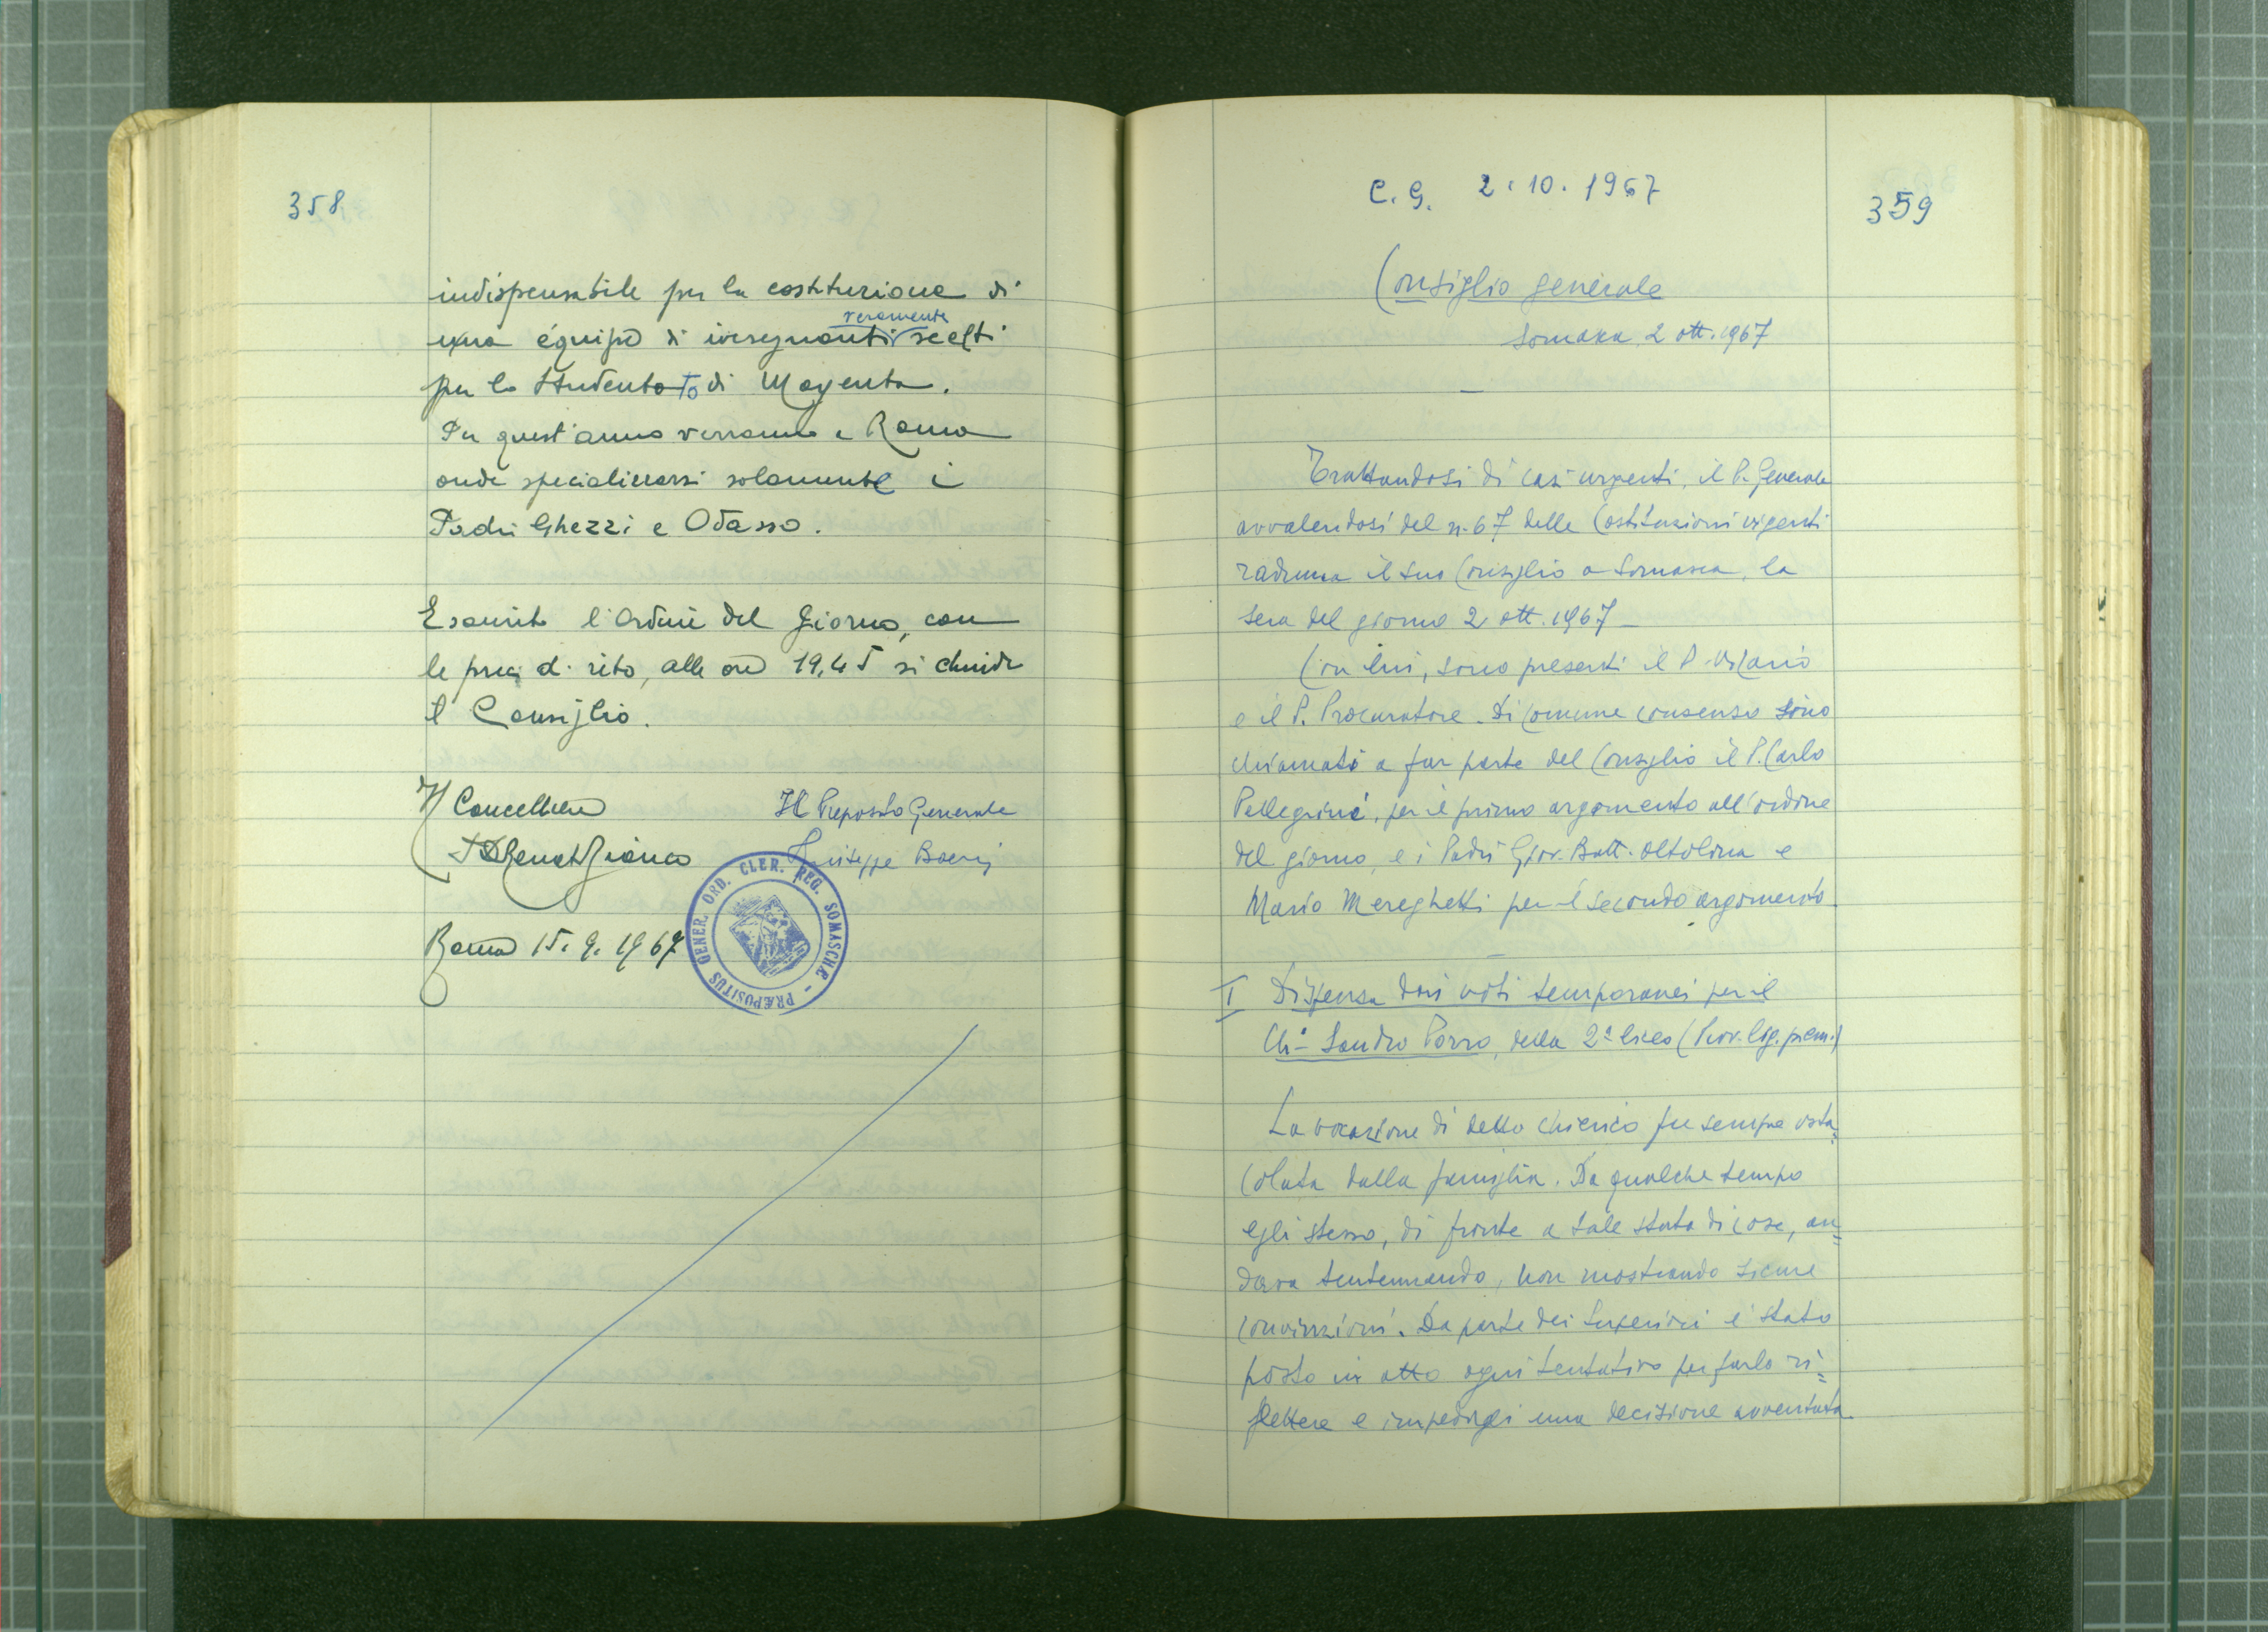 358
indispensabile per la costituzione di
una équipe di insegnanti veramente scelti
per lo Studentato di Magenta.
Per quest'anno verranno a Roma
onde specializzarsi solamente i
Padri Ghezzi e Odasso.
Esaurito l'Ordine del Giorno, con
le preci di rito, alle ore 19,45 si chiude
il Consiglio.
Il Cancelliere Il Preposito Generale
Giuseppe Boeri
Roma 15.9.1967
PRÆPOSITUS GENER. ORD. CLER. REG. SOMASCHÆ
C.G. 2.10.1967
359
Consiglio generale
Somasca 2 ott. 1967
Trattandosi di casi urgenti, il P. Generale
avvalendosi del n. 67 delle Costituzioni vigenti
raduna il suo Consiglio a Somasca, la
sera del giorno 2 ott. 1967 -
Con lui, sono presenti il P. Vicario
e il P. Procuratore. Di comune consenso sono
chiamati a far parte del Consiglio il P. Carlo
Pellegrini, per il primo argomento all'ordine
del giorno, e i Padri Giov. Batt. Oltolina e
Mario Mereghetti per il secondo argomento
I Dispensa dai voti temporanei per il
Ch. Sandro Porro, della 2ª liceo (Prov. lig. piem.)
La vocazione di detto chierico fu sempre osta=
colata dalla famiglia. Da qualche tempo
egli stesso, di fronte a tale stato di cose, an=
dava tentennando, non mostrando sicure
convinzioni. Da parte dei Superiori è stato
posto in atto ogni tentativo per farlo ri=
flettere e impedirgli una decisione avventata